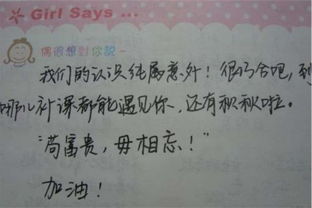 Girl Says ...
偶很想對你說~
我们的认识纯属意外！很巧合吧，到
哪儿补课都能遇见你，还有秋秋啦。
“苟富贵，毋相忘！”
加油！